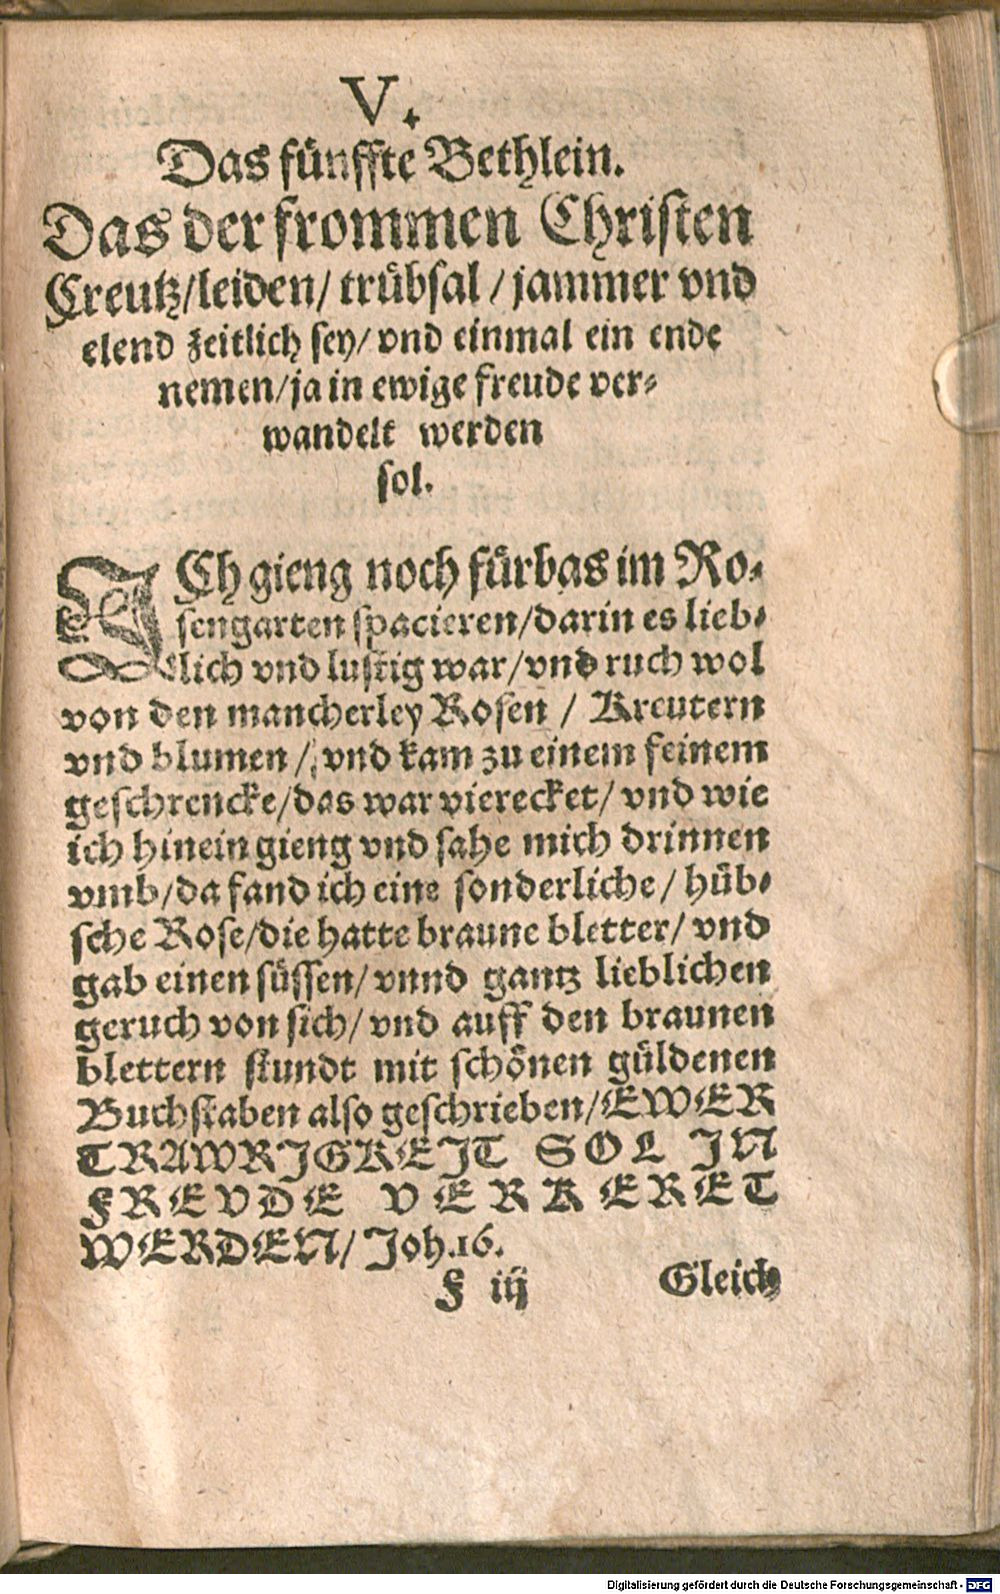 V.
Das fünffte Bethlein.
Das der frommen Christen
Creutz/leiden/ trübsal / jammer vnd
elend zeitlich sey/ vnd einmal ein ende
nemen/ja in ewige freude ver-
wandelt werden
sol.
JCh gieng noch fürbas im Ro-
sengarten spacieren/darin es lieb-
lich vnd lustig war/vnd ruch wol
von den mancherley Rosen / Kreutern
vnd blumen / vnd kam zu einem feinem
geschrencke/das war vierecket/ vnd wie
ich hinein gieng vnd sahe mich drinnen
vmb/da fand ich eine sonderliche/ hüb-
sche Rose/die hatte braune bletter/ vnd
gab einen süssen/ vnnd gantz lieblichen
geruch von sich/ vnd auff den braunen
blettern stundt mit schönen güldenen
Buchstaben also geschrieben/EWER
TRAWRJGKEJT SOL JN
FREVDE VERKERET
WERDEN/ Joh.16.
F iij Gleich
Digitalisierung gefördert durch die Deutsche Forschungsgemeinschaft - DFG